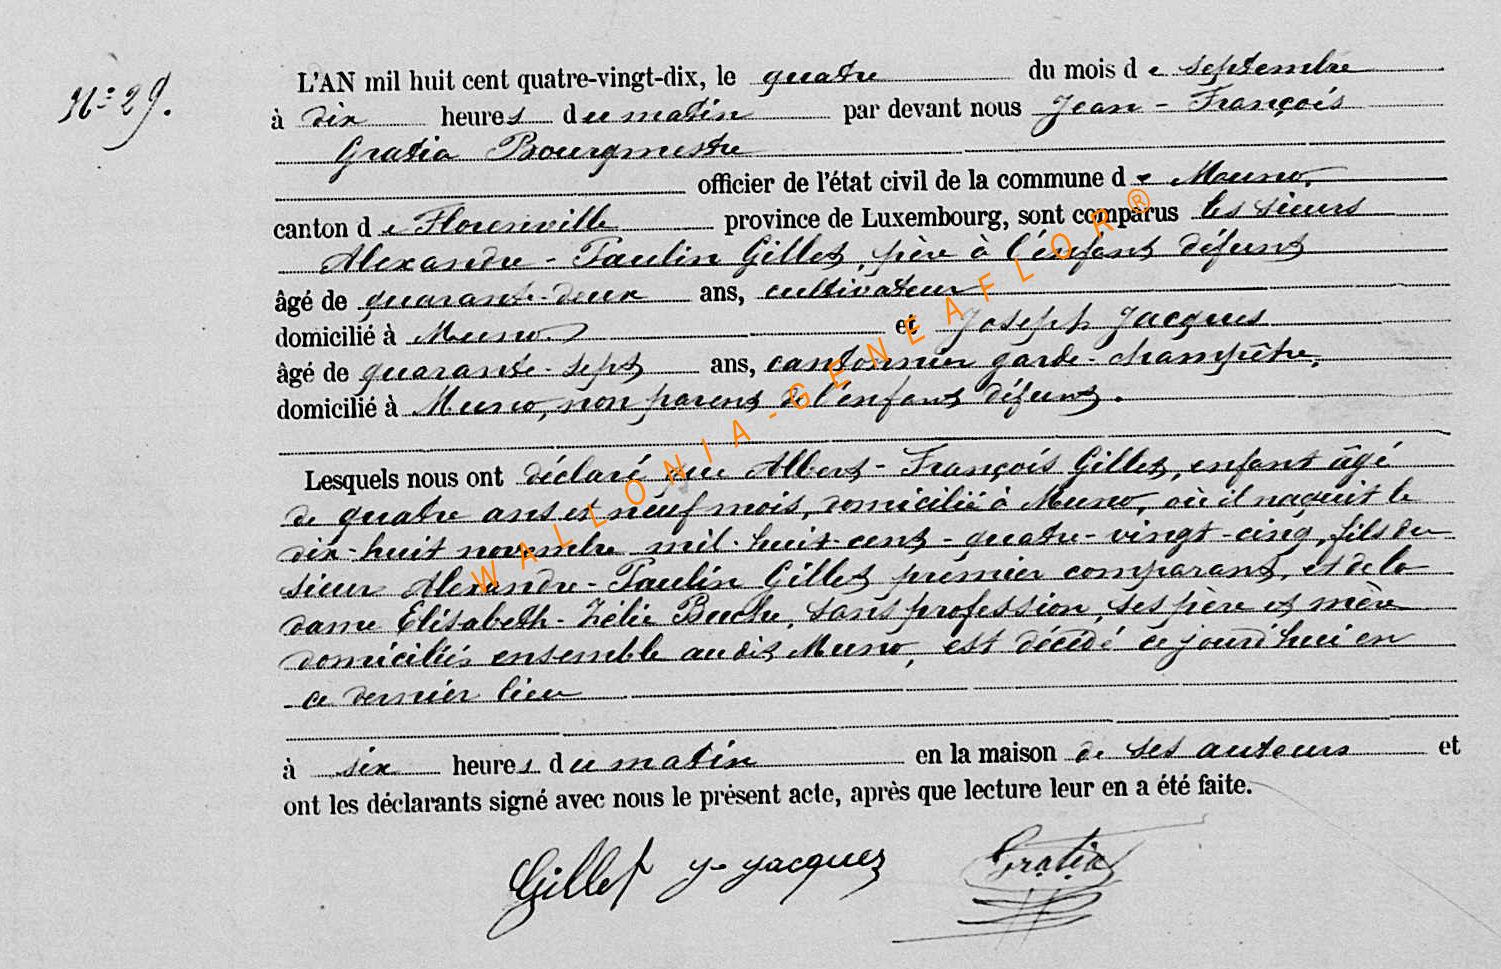 N° 29.
L'AN mil huit cent quatre-vingt-dix, le quatre du mois de septembre
à dix heures du matin par devant nous Jean-François
Gratia Bourgmestre
officier de l'état civil de la commune de Muno,
canton de Florenville province de Luxembourg, sont comparus les sieurs
Alexandre-Paulin Gillet, père à l'enfant défunt
âgé de quarante-deux ans, cultivateur
domicilié à Muno et Joseph Jacques
âgé de quarante-sept ans, cantonnier garde-champêtre,
domicilié à Muno, non parent de l'enfant défunt.
Lesquels nous ont déclaré que Albert-François Gillet, enfant âgé
de quatre ans et neuf mois, domicilié à Muno, où il naquit le
dix-huit novembre mil-huit-cent-quatre-vingt-cinq, fils du
sieur Alexandre-Paulin Gillet premier comparant, et de la
dame Elisabeth-Zélie Buche, sans profession, ses père et mère
domiciliés ensemble au dit Muno, est décédé ce jourd'hui en
ce dernier lieu
à six heures du matin en la maison de ses auteurs et
ont les déclarants signé avec nous le présent acte, après que lecture leur en a été faite.
Gillet J. Jacques Gratia
WALLONIA-GENEAFLOR®